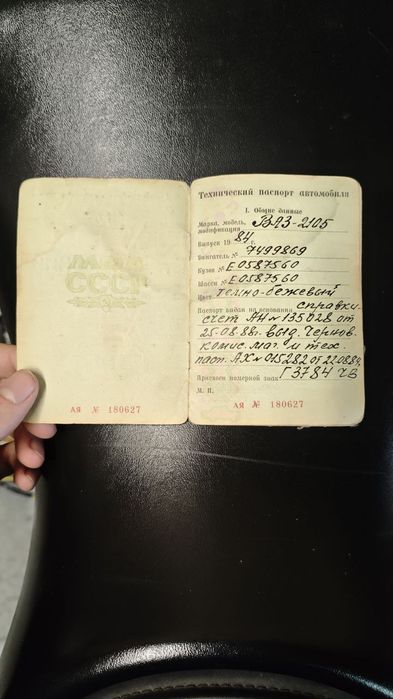 МВД
СССР
АЯ № 180627
Технический паспорт автомобиля
I. Общие данные
Марка, модель, ВАЗ-2105
модификация
Выпуск 19 84
Двигатель № 7499869
Кузов № Е0587560
Шасси № Е0587560
Цвет темно-бежевый
Паспорт выдан на основании справки-
счет АН № 135028 от
25.08.88г. выд. Чернов.
комис. маг. и тех.
пасп. АХ № 015282 от 220884
Присвоен номерной знак Г 3784 ЧВ
М. П.
АЯ № 180627